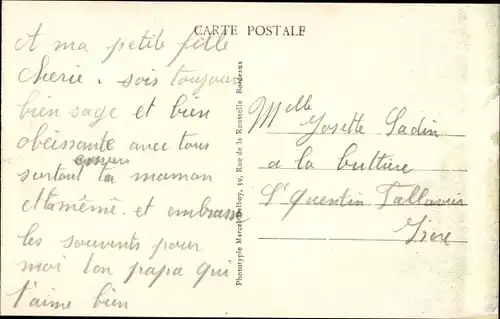 CARTE POSTALE
A ma petite fille
cherie. sois toujours
bien sage et bien
obeissante avec tous
surtout ta maman
et tamémé. et embrasse
les souvents pour
moi ton papa qui
t'aime bien
Phototypie Marcel Delboy, 19, Rue de la Rousselle Bordeaux
Melle
Josette Sadin
a la butture
St Quentin Fallavier
Isere